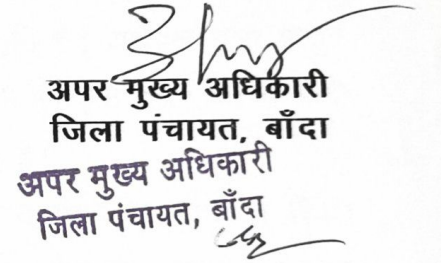 अपर मुख्य अधिकारी
जिला पंचायत, बाँदा
अपर मुख्य अधिकारी
जिला पंचायत, बाँदा